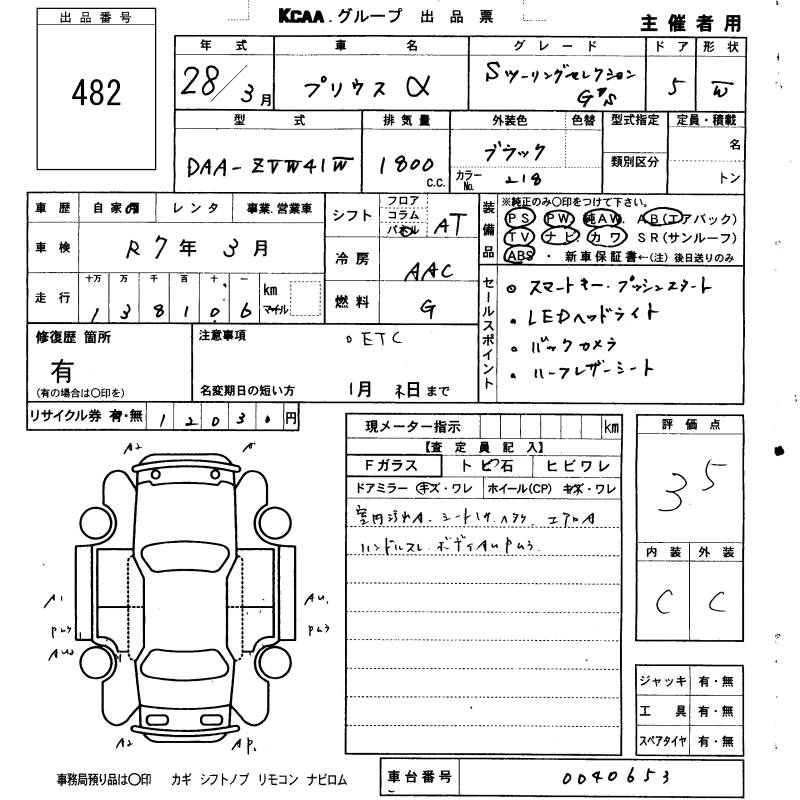 KCAA.グループ 出品票
主催者用
出品番号
482
年式 車名 グレード ドア 形状
28/3月 プリウス α Sツーリングセレクション G's 5 W
型式 排気量 外装色 色替 型式指定 定員・積載
DAA-ZVW41W 1800 C.C. ブラック 類別区分 名
カラーNo. 218 トン
車歴 自家用 レンタ 事業.営業車
シフト フロア コラム パネル AT
車検 R7年3月
冷房 AAC
走行 十万 万 千 百 十 一 km マイル
1 3 8 1 0 6
燃料 G
装備品 ※純正のみ○印をつけて下さい。
PS PW 純AW. AB(エアバック)
TV ナビ カワ SR(サンルーフ)
ABS ・ 新車保証書←(注)後日送りのみ
セールスポイント
スマートキー・プッシュスタート
LEDヘッドライト
バックカメラ
ハーフレザーシート
修復歴 箇所
有
(有の場合は○印を)
注意事項
ETC
名変期日の短い方 1月 末日まで
リサイクル券 有・無 12030円
現メーター指示 km
【査定員記入】
Fガラス トビ石 ヒビワレ
ドアミラー キズ・ワレ ホイール(CP) キズ・ワレ
ハンドルスレ. ボディAUPU3
評価点
3.5
内装 外装
C C
A2 A
A1 AU.
PU3
A2 AP.
ジャッキ 有・無
工具 有・無
スペアタイヤ 有・無
事務局預り品は○印 カギ シフトノブ リモコン ナビロム
車台番号 0040653